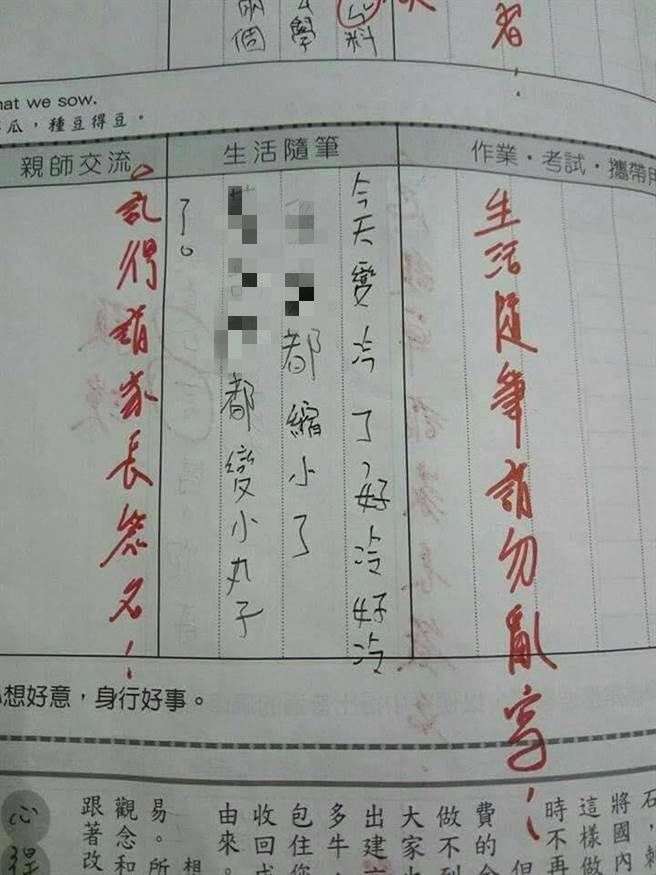 料
學
兩個
hat we sow.
瓜，種豆得豆。
親師交流
生活隨筆
作業・考試・攜帶用
生活隨筆請勿亂寫！
今天變冷了,好冷好冷
都縮小了
都變小丸子
了。
記得請家長簽名！
想好意，身行好事。
石，
將國內
這樣做
時不再
但
費的
做不到
大家
出建
多牛，
包住
收回
由來。
想
易。所
觀念和
跟著改
心得